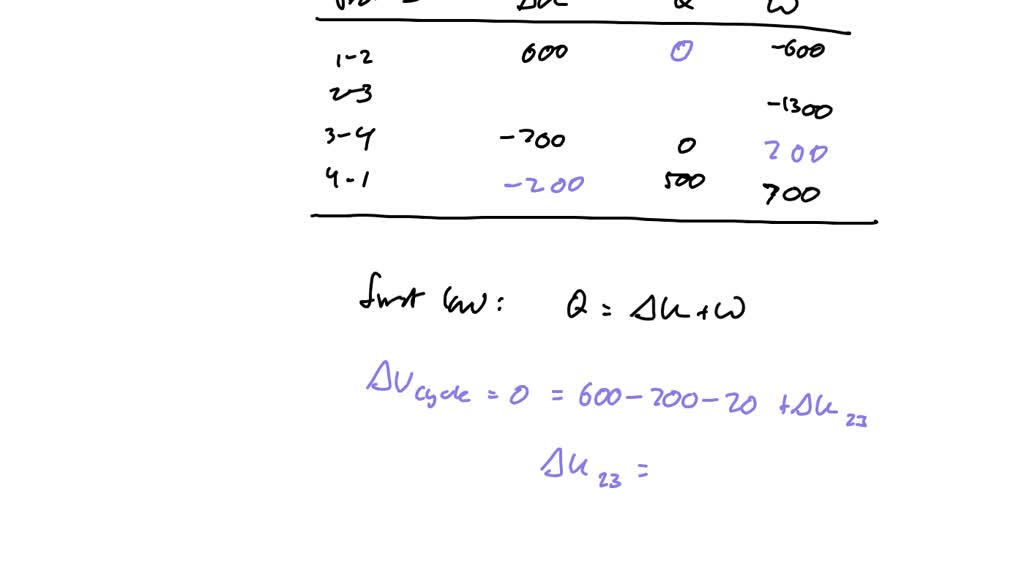 ΔU Q W
1-2 600 0 -600
2-3 -1300
3-4 -700 0 700
4-1 -200 500 700
first law: Q = ΔU + W
ΔU cycle = 0 = 600 - 700 - 20 + ΔU 23
ΔU 23 =